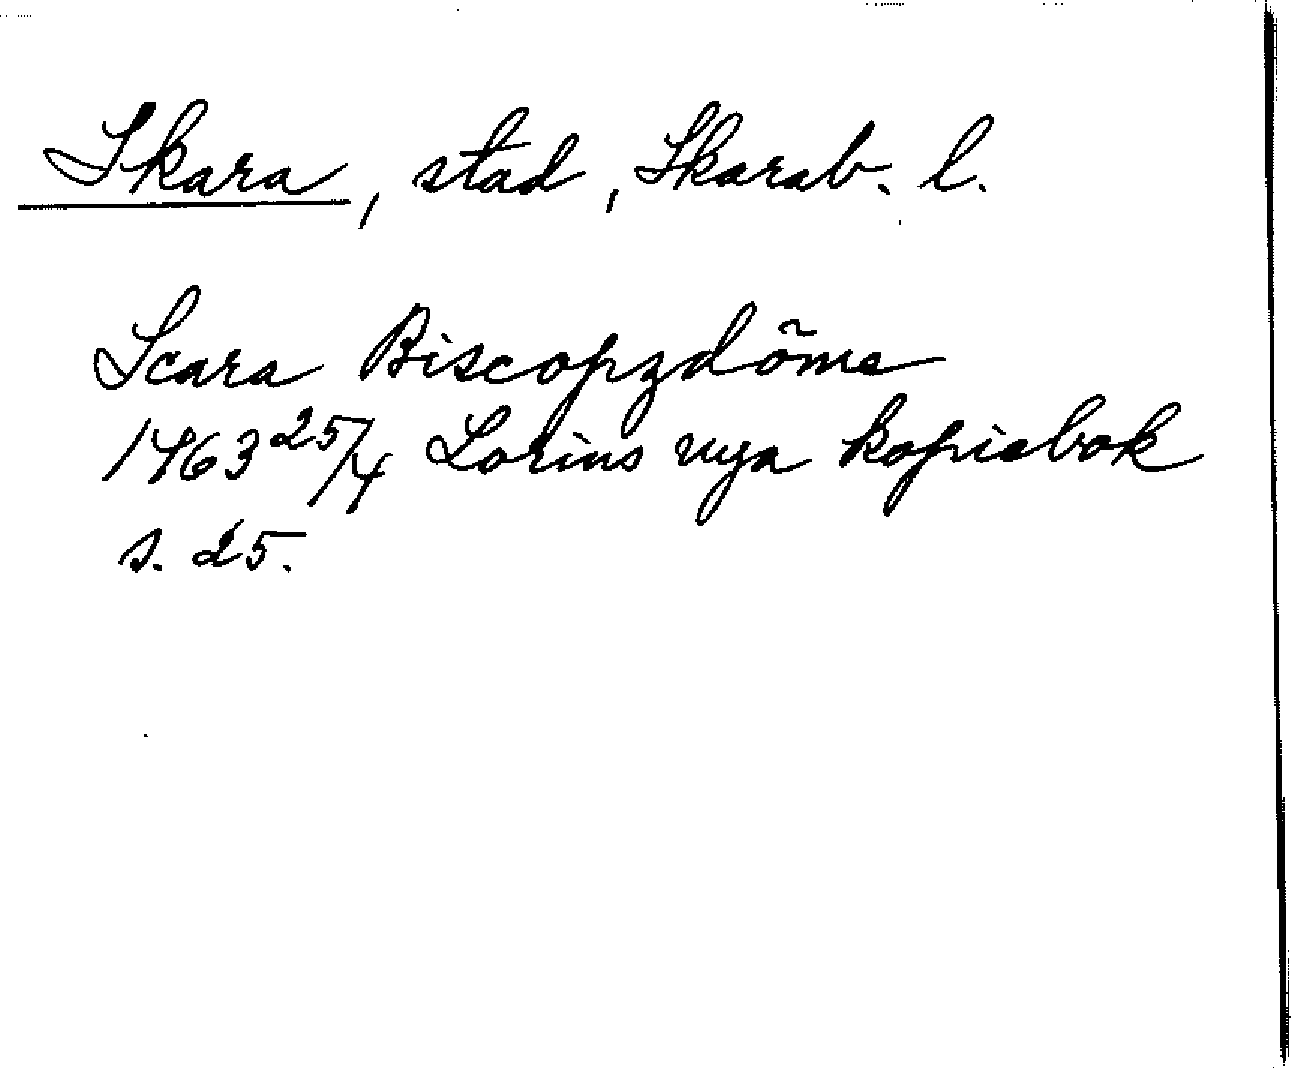 Skara, stad, Skarab. l.
Scara Biscopzdõme
1463 25/4 Lorins nya kopiebok
s. 25.